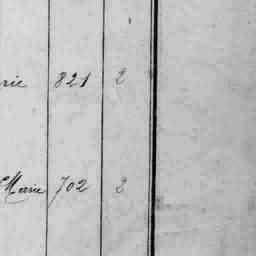 rie 821 2
Marie 702 2